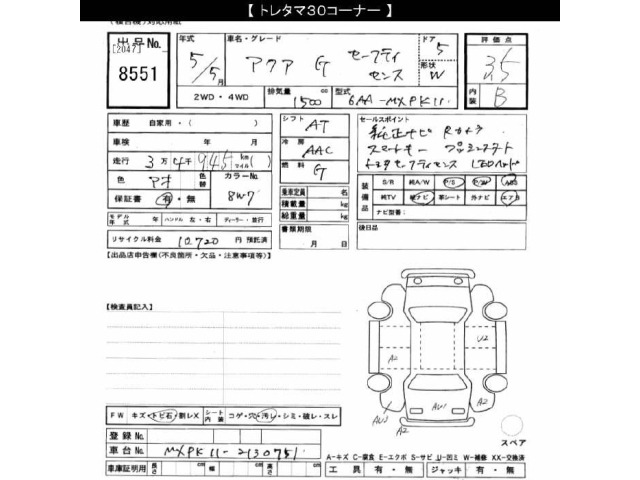 【 トレタマ３０コーナー 】
(積合機)対応用紙
出品No.
[2047]
8551
年式
5/5月
車名・グレード
アクア G セーフティセンス
ドア 5
形状 W
評価点
3.5
内装 B
2WD・4WD
排気量 1500 cc
型式 6AA-MXPK11
車歴 自家用・( )
車検 年 月
走行 3万4千945 km(マイル)( )
色 アオ
色替
カラーNo. 8W7
保証書 有・無
モデル年式 年
ハンドル 左・右
ディーラー・並行
リサイクル料金 10720 円預託済
シフト AT
冷房 AAC
燃料 G
乗車定員 名
積載量 kg
総重量 kg
書類期限
月 日
セールスポイント
純正ナビ Rカメラ
スマートキー プッシュスタート
トヨタセーフティセンス LEDヘッド
装備品
S/R 純A/W P/S P/W ABS
純TV 純ナビ 革シート 外ナビ エアB
ナビ型番:
後日品
【出品店申告欄(不良箇所・欠品・注意事項等)】
【検査員記入】
A2
U2
AU3
A2
AU1
A2
スペア
FW キズ・トビ石・割レX
シート内装 コゲ・穴・汚レ・シミ・破レ・スレ
登録No.
車台No. MXPK11-2130751
車庫証明用 長さ cm 幅 cm 高さ cm
A-キズ C-腐食 E-エクボ S-サビ U-凹ミ W-補修 XX-交換済
工具 有・無 ジャッキ 有・無